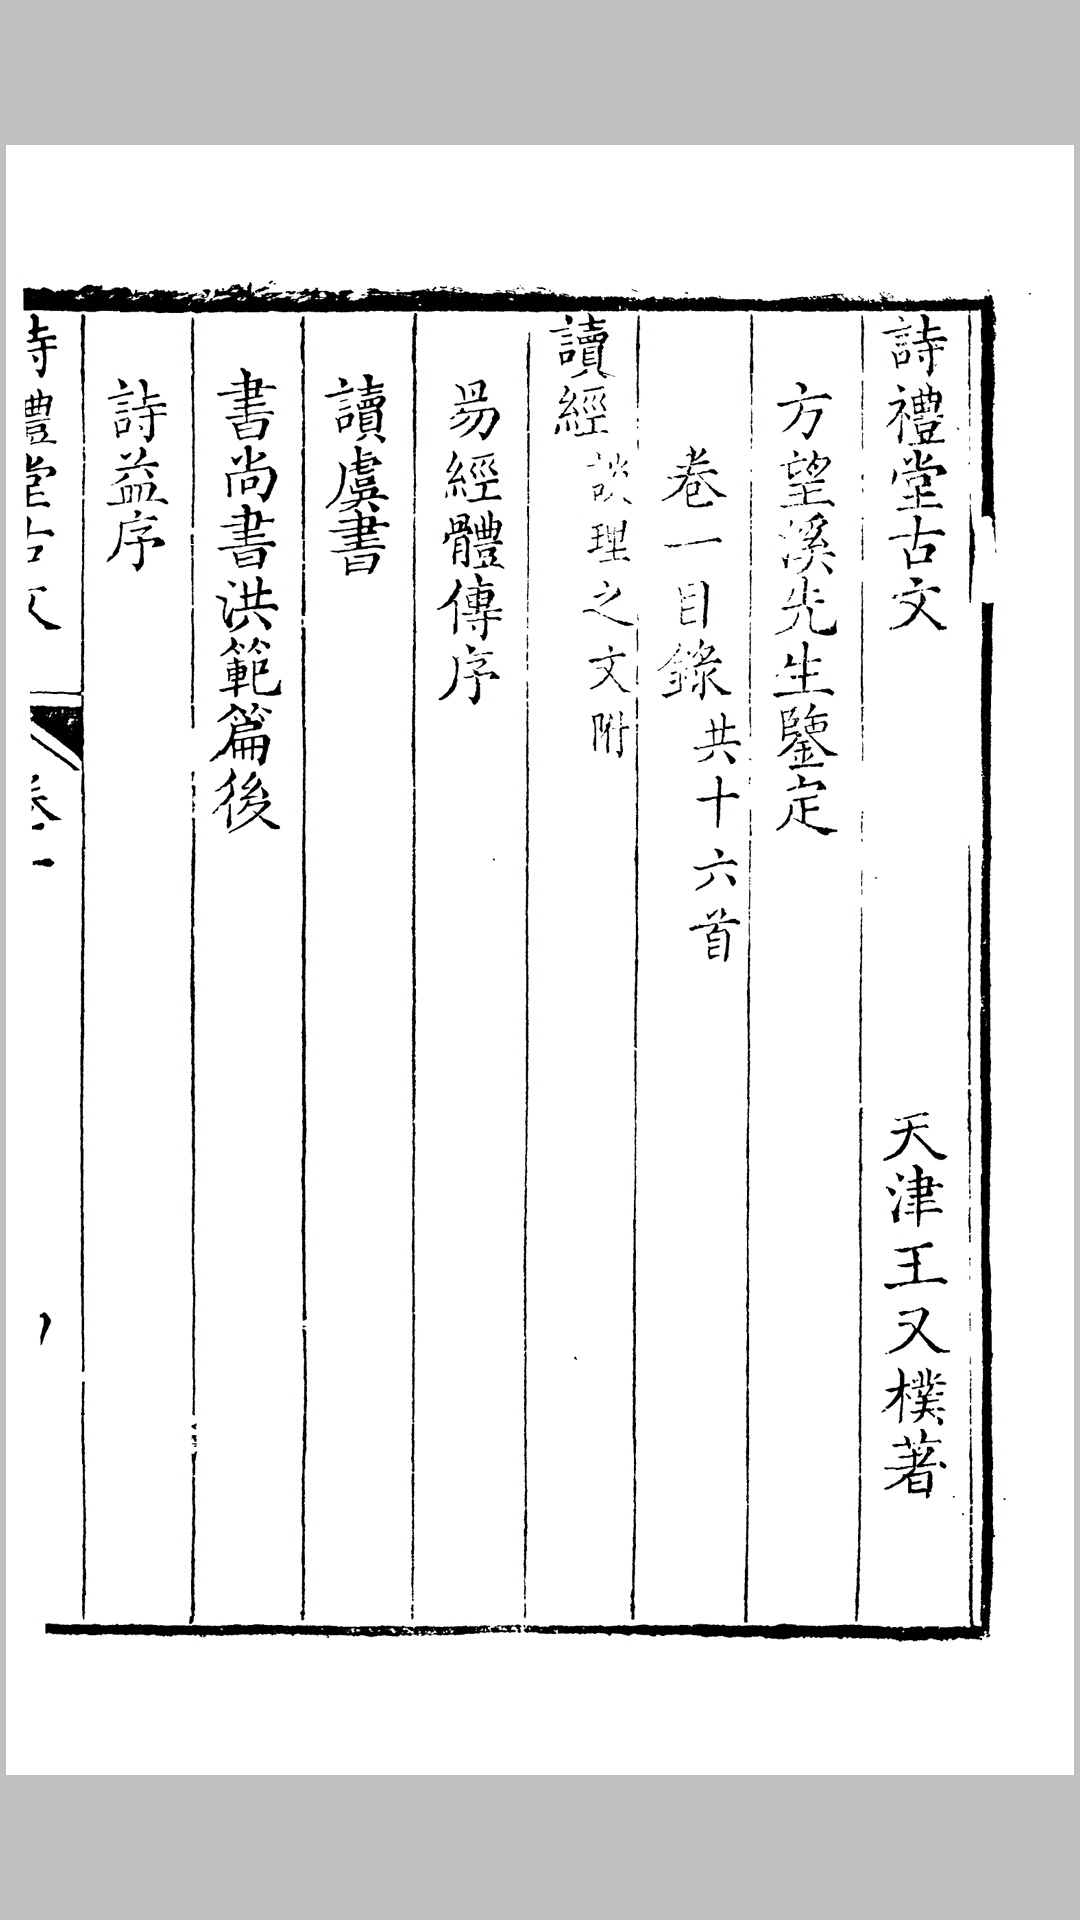 詩禮堂古文 天津王又樸著
方望溪先生鑒定
卷一目錄 共十六首
讀經 談理之文附
易經體傳序
讀虞書
書尚書洪範篇後
詩益序
詩禮堂古文 卷一